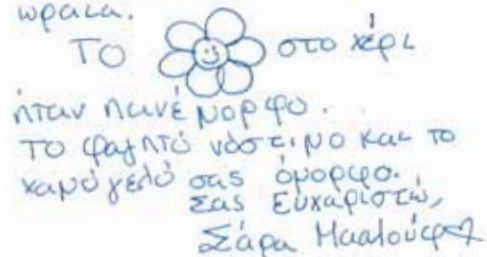 ωραια.
ΤΟ στο χέρι
ήταν πανέμορφο.
Το φαγητό νόστιμο και το
χαμόγελό σας όμορφο.
Σας Ευχαριστώ,
Σάρα Μααλούφ